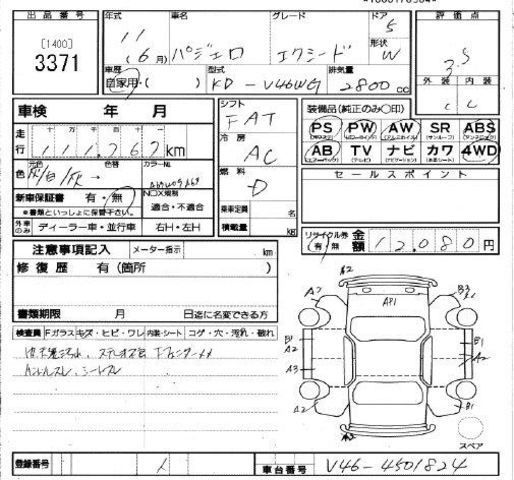 出品番号
[1400]
3371
年式
11
(6月)
車名
パジェロ
グレード
エクシード
ドア
5
形状
W
評価点
3.5
外装 内装
C C
車歴
自家用・( )
型式
KD-V46WG
排気量
2800 cc
車検 年 月
走行
111,767 km
シフト
FAT
冷房
AC
燃料
D
乗車定員 名
積載量 kg
装備品(純正のみ○印)
PS PW AW SR ABS
AB TV ナビ カワ 4WD
セールスポイント
元色
色替
カラーNo.
色
新車保証書 有・無
※書類といっしょに保管下さい。
NOX規制
適合・不適合
外車のみ
ディーラー車・並行車
右H・左H
リサイクル券
(有)無
金額 12,080円
注意事項記入
メーター指示 km
修復歴 有(箇所 )
書類期限 月 日迄に名変できる方
検査員 Fガラス キズ・ヒビ・ワレ 内装・シート コゲ・穴・汚れ・破れ
A2
A2
AP1
B3
B1
A2
A3
A2
B1
A2
B1
スペア
登録番号
車台番号
V46-4501824